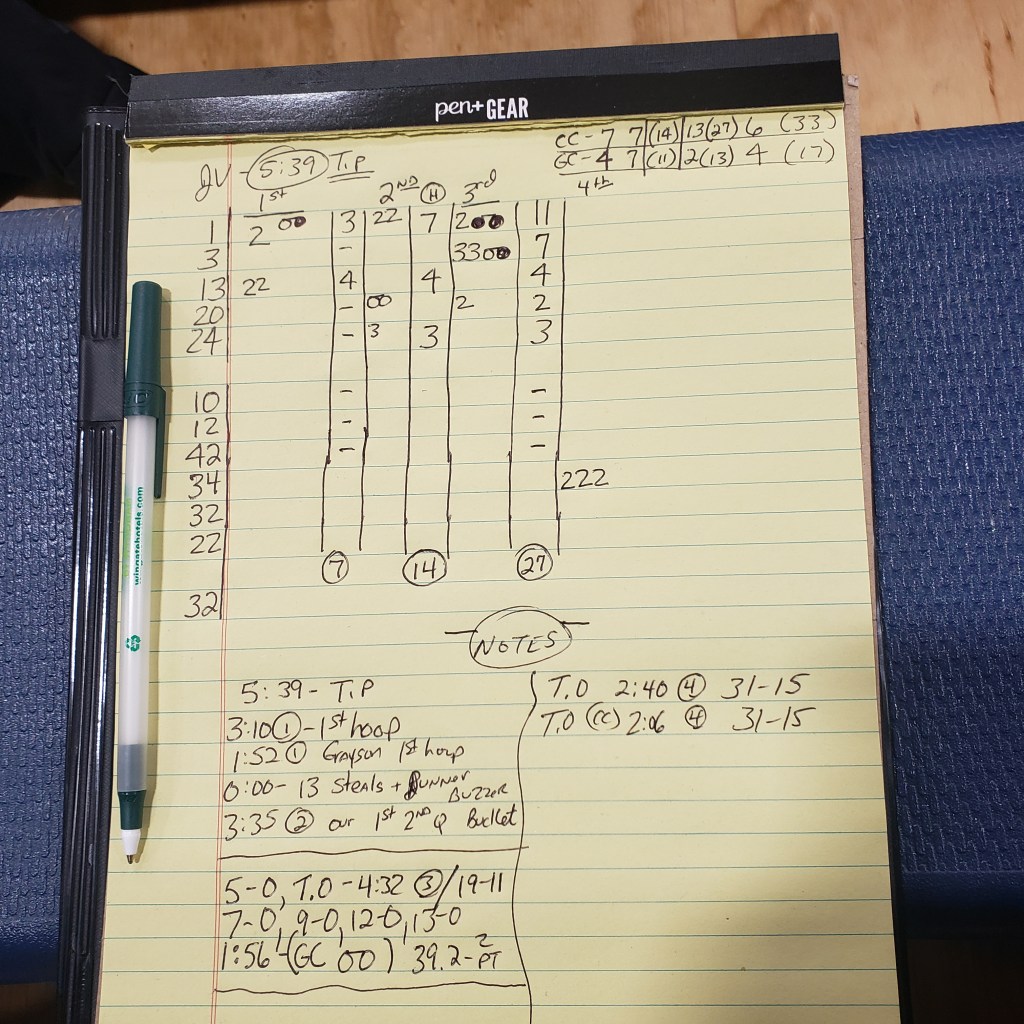 pen+GEAR
CC - 7 7 (14) 13(27) 6 (33)
GC - 4 7 (11) 2(13) 4 (17)
JV - 5:39 TiP
1st 2ND (H) 3rd 4th
1 2 00 3 22 7 200 11
3 - 3300 7
13 22 4 4 4
20 - 00 2 2
24 - 3 3 3
10 - -
12 - -
42 - -
34 222
32
22
7 14 27
32
NOTES
5:39 - TiP
3:10 (1) - 1st hoop
1:52 (1) Grayson 1st hoop
0:00 - 13 Steals + RUNNER
BUZZER
3:35 (2) our 1st 2ND Q Bucket
5-0, T.O - 4:32 (3) / 19-11
7-0, 9-0, 12-0, 13-0
1:56 - (GC 00) 39.2 - 2 PT
T.O 2:40 (4) 31-15
T.O (CC) 2:06 (4) 31-15
wingatehotels.com